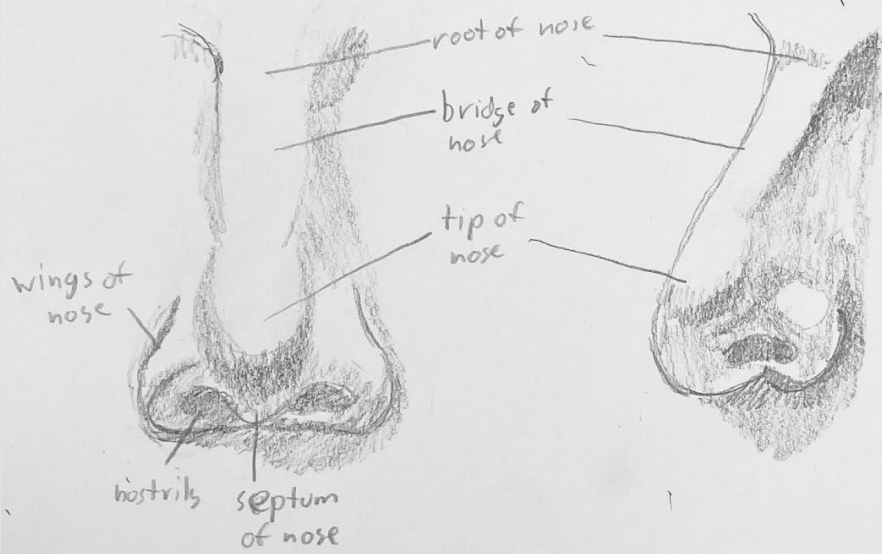 root of nose
bridge of
nose
tip of
nose
wings of
nose
nostrils
septum
of nose